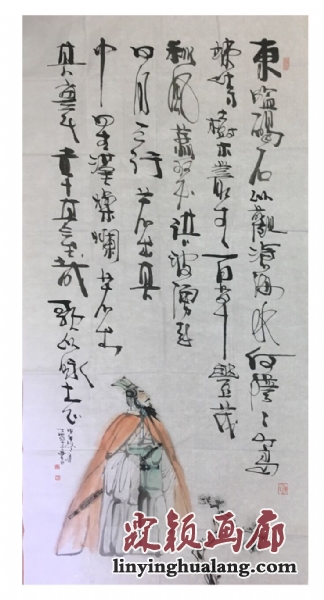 東臨碣石以觀滄海水何澹〻山島
竦峙樹木叢生百草豐茂
秋風蕭瑟洪波湧起
日月之行若出其
中星漢燦爛若出
其裏幸甚至哉歌以咏志
霖颖画廊
linyinghualang.com